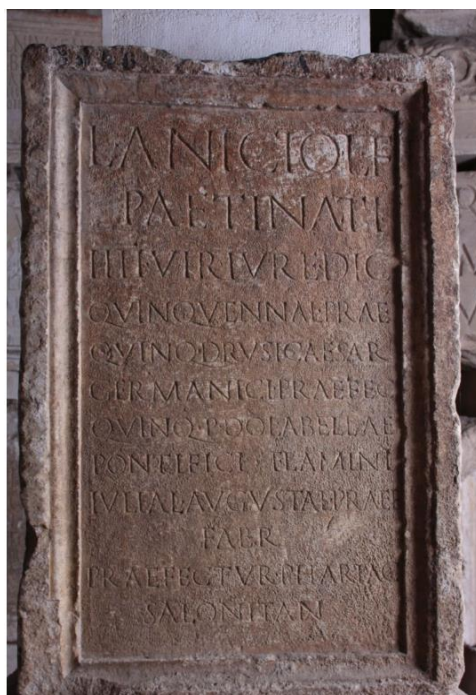 L ANICIO L F
PAETINATI
IIII VIR IVRE DIC
QVINQVENNAL PRAE
QVINQ DRVSI CAESAR
GERMANICI PRAEFEC
QVINQ P DOLABELLAE
PONTIFICI FLAMINI
IVLIAE AVGVSTAE PRAEF
FABR
PRAEFECTVR PHARIAC
SALONITAN